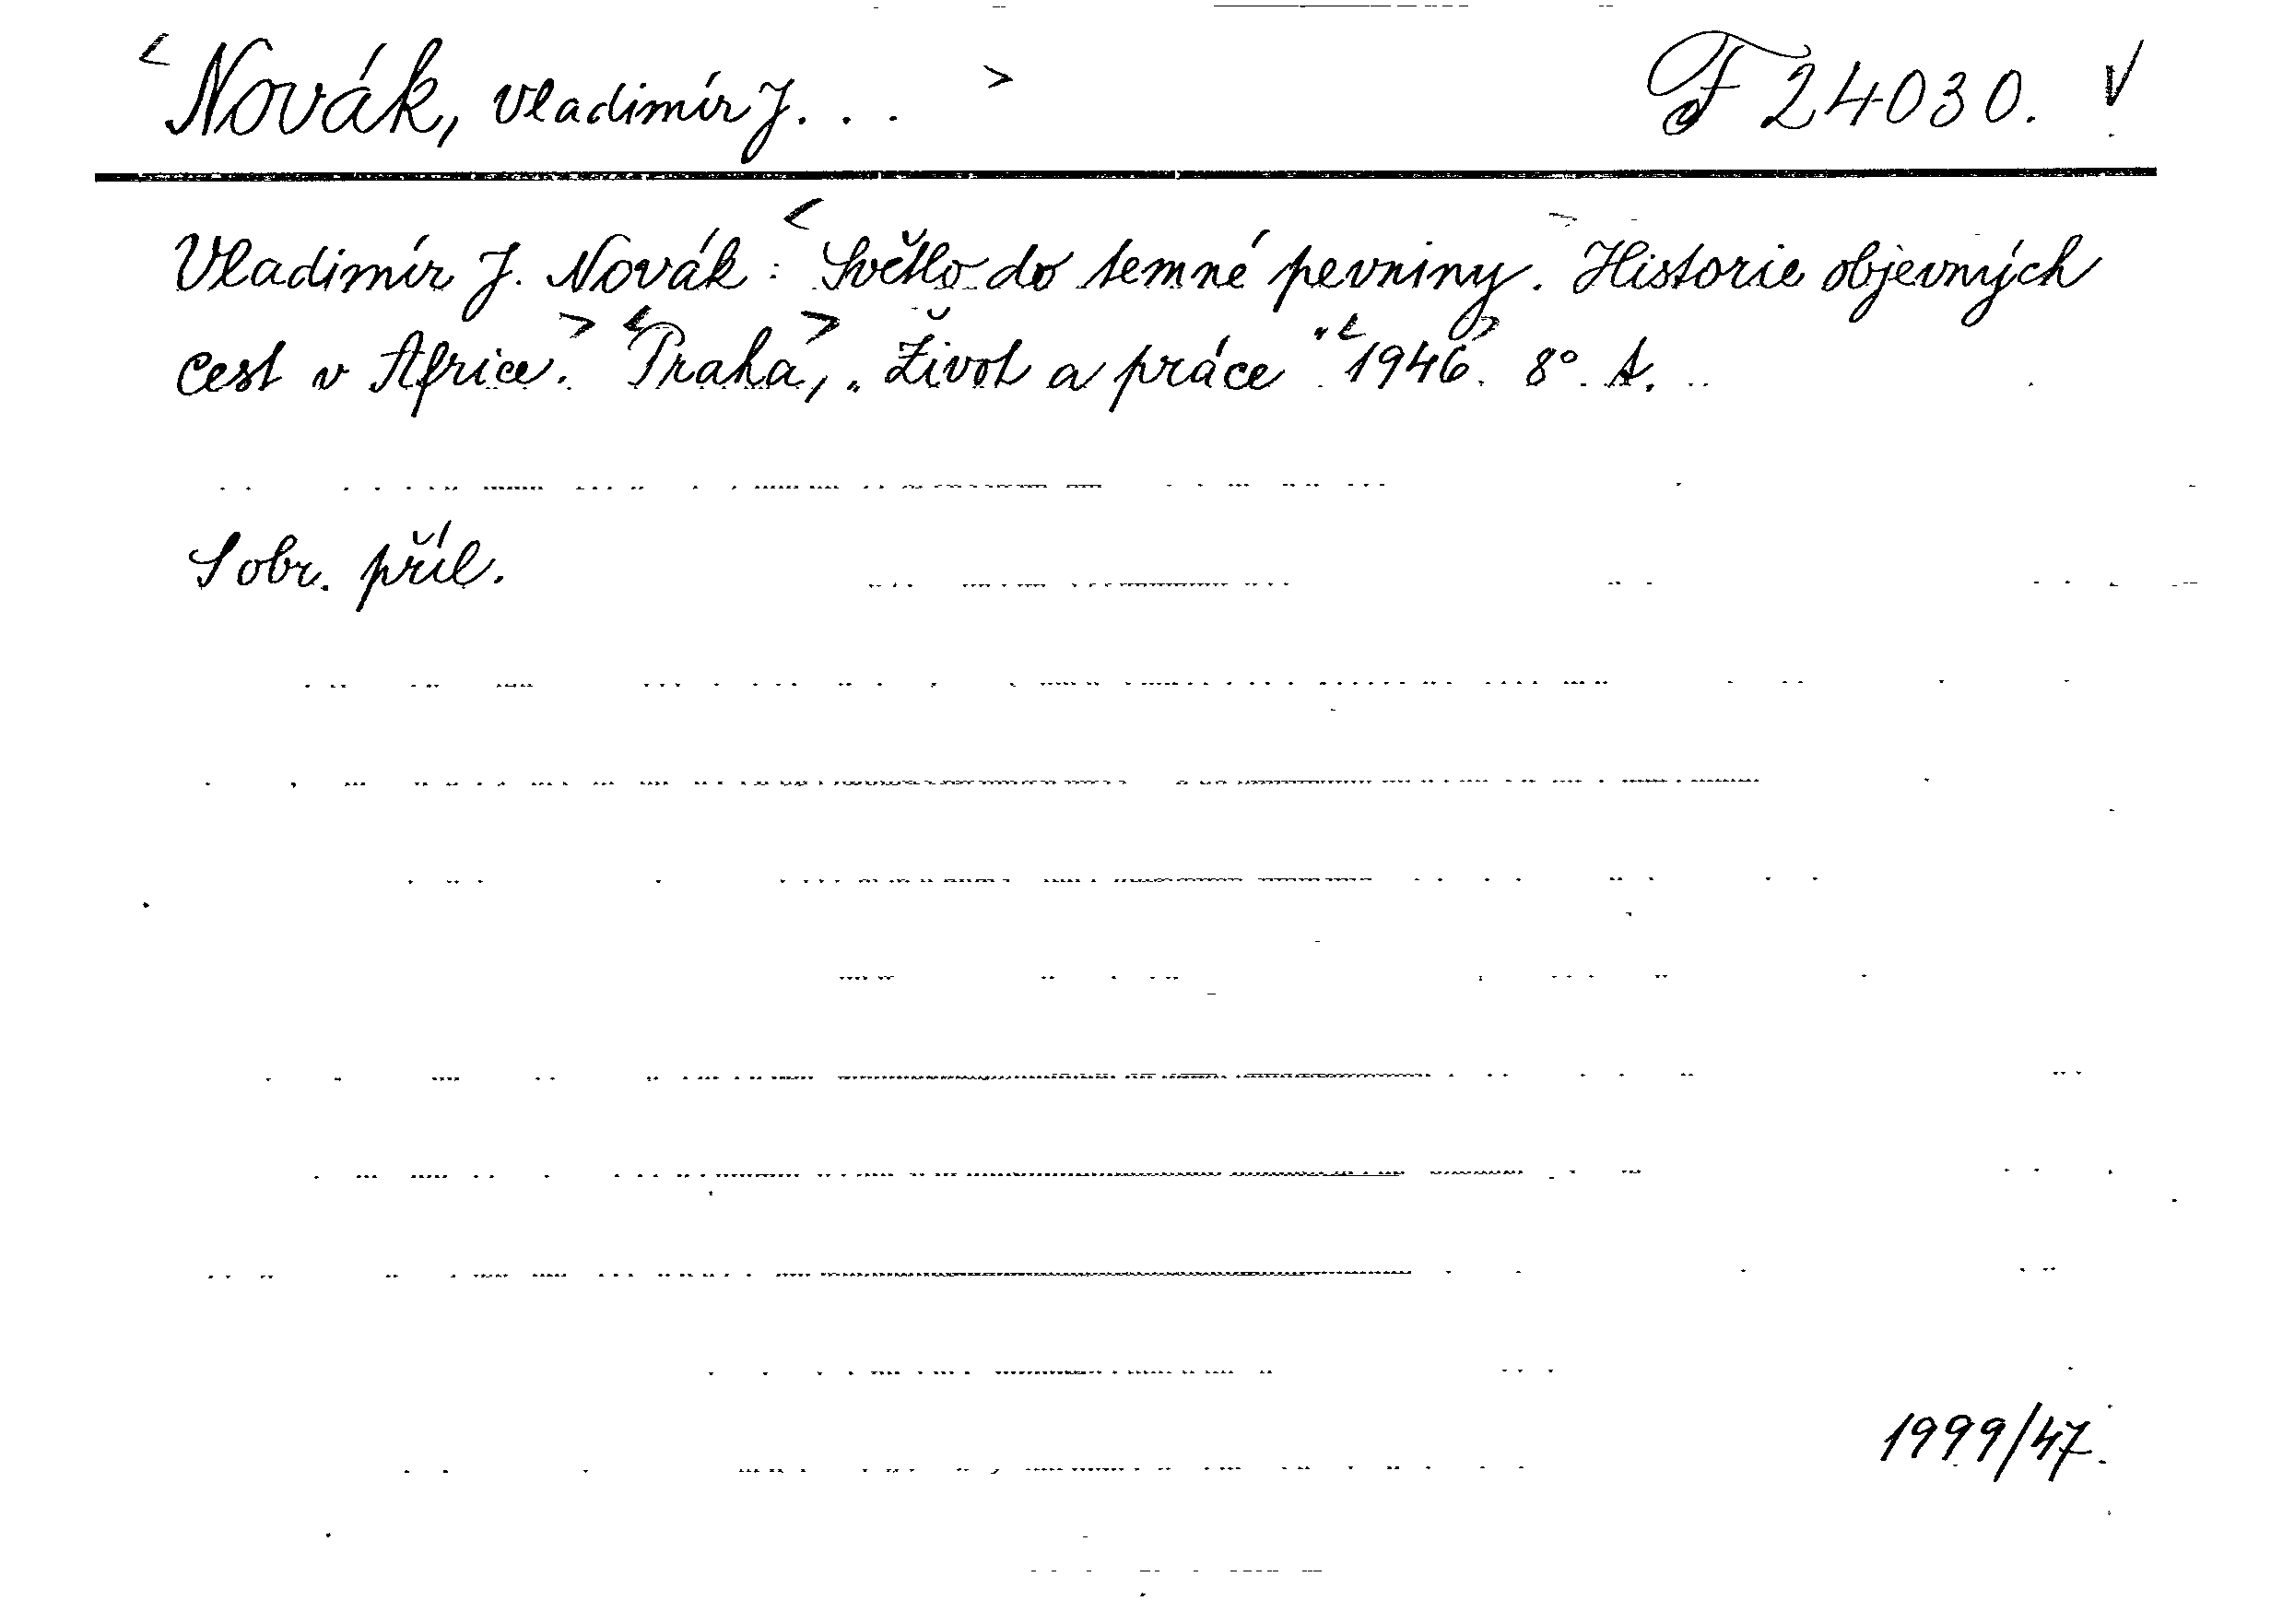 <Novák, Vladimír J. . . > F 24030. √
Vladimír J. Novák: <Světlo do temné pevniny. Historie objevných
cest v Africe.> <Praha,> „Život a práce“ <1946>. 8°. A.
S obr. příl.
1999/47.